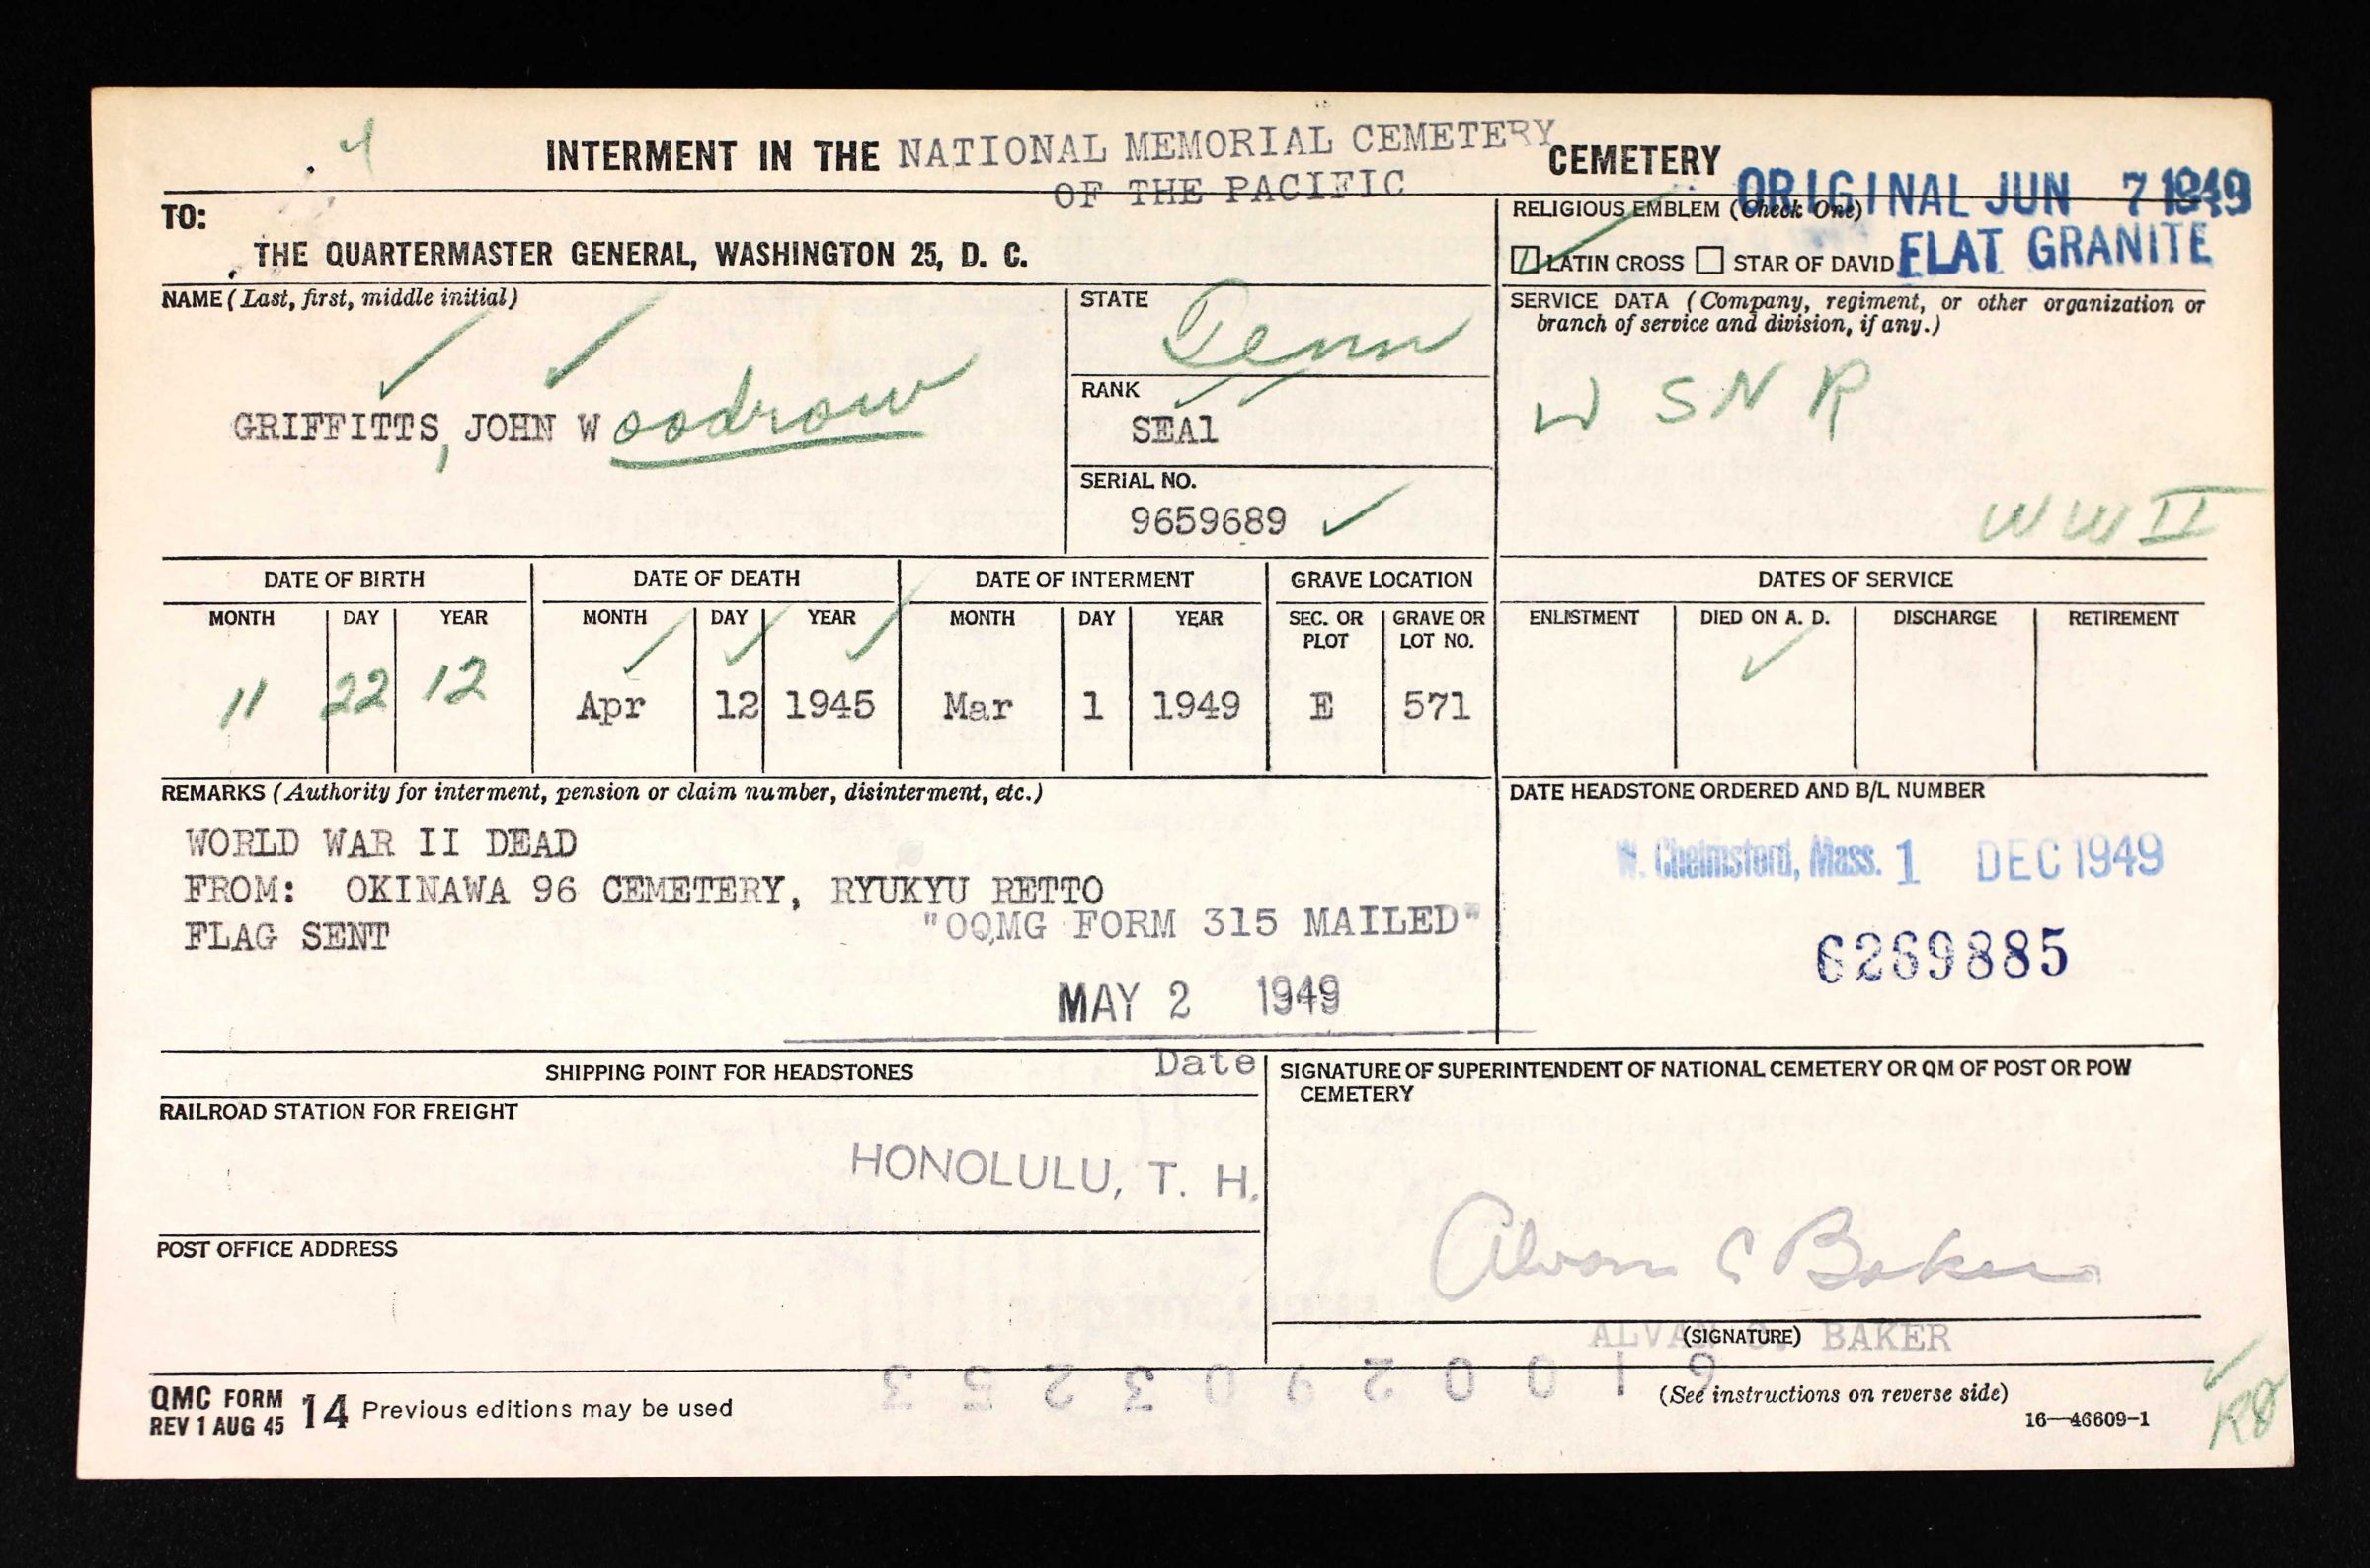 4
INTERMENT IN THE NATIONAL MEMORIAL CEMETERY CEMETERY
OF THE PACIFIC
ORIGINAL JUN 7 1949
TO:
THE QUARTERMASTER GENERAL, WASHINGTON 25, D. C.
RELIGIOUS EMBLEM (Check One)
LATIN CROSS STAR OF DAVID FLAT GRANITE
NAME (Last, first, middle initial)
GRIFFITTS, JOHN Woodrow
STATE
Tenn
RANK
SEA1
SERIAL NO.
9659689
SERVICE DATA (Company, regiment, or other organization or
branch of service and division, if any.)
U S N R
WW II
DATE OF BIRTH DATE OF DEATH DATE OF INTERMENT GRAVE LOCATION DATES OF SERVICE
MONTH DAY YEAR MONTH DAY YEAR MONTH DAY YEAR SEC. OR PLOT GRAVE OR LOT NO. ENLISTMENT DIED ON A. D. DISCHARGE RETIREMENT
11 22 12 Apr 12 1945 Mar 1 1949 E 571
REMARKS (Authority for interment, pension or claim number, disinterment, etc.)
WORLD WAR II DEAD
FROM: OKINAWA 96 CEMETERY, RYUKYU RETTO
FLAG SENT
"OQMG FORM 315 MAILED"
MAY 2 1949
Date
DATE HEADSTONE ORDERED AND B/L NUMBER
W. Chelmsford, Mass. 1 DEC 1949
6269885
SHIPPING POINT FOR HEADSTONES
RAILROAD STATION FOR FREIGHT
HONOLULU, T. H.
POST OFFICE ADDRESS
SIGNATURE OF SUPERINTENDENT OF NATIONAL CEMETERY OR QM OF POST OR POW
CEMETERY
Alvan C Baker
(SIGNATURE)
ALVAN C. BAKER
QMC FORM 14 Previous editions may be used
REV 1 AUG 45
(See instructions on reverse side)
16—46609-1